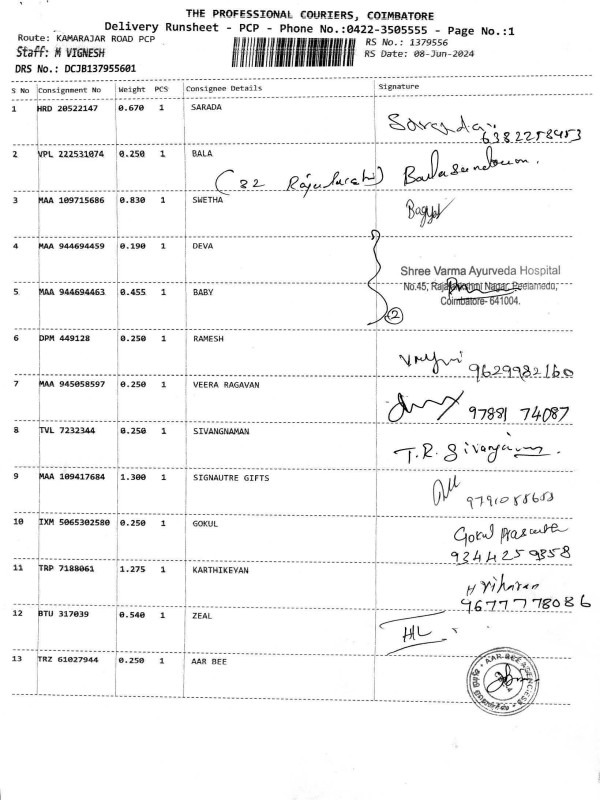 THE PROFESSIONAL COURIERS, COIMBATORE
Delivery Runsheet - PCP - Phone No.:0422-3505555 - Page No.:1
Route: KAMARAJAR ROAD PCP
RS No.: 1379556
Staff: M VIGNESH
RS Date: 08-Jun-2024
DRS No.: DCJB137955601
S No Consignment No Weight PCS Consignee Details Signature
1 HRD 20522147 0.670 1 SARADA
Sarada
6382258453
2 VPL 222531074 0.250 1 BALA
(32
3 MAA 109715686 0.830 1 SWETHA
4 MAA 944694459 0.190 1 DEVA
Shree Varma Ayurveda Hospital
No.45, Rajalakshmi Nagar, Peelamedu,
Coimbatore- 641004.
5 MAA 944694463 0.455 1 BABY
2
6 DPM 449128 0.250 1 RAMESH
9629982160
7 MAA 945058597 0.250 1 VEERA RAGAVAN
97881 74087
8 TVL 7232344 0.250 1 SIVANGNAMAN
T.R.
9 MAA 109417684 1.300 1 SIGNAUTRE GIFTS
10 IXM 5065302580 0.250 1 GOKUL
Gokul
9344259358
11 TRP 7188061 1.275 1 KARTHIKEYAN
9677778086
12 BTU 317039 0.540 1 ZEAL
13 TRZ 61027944 0.250 1 AAR BEE
AAR BEE AGENCIES